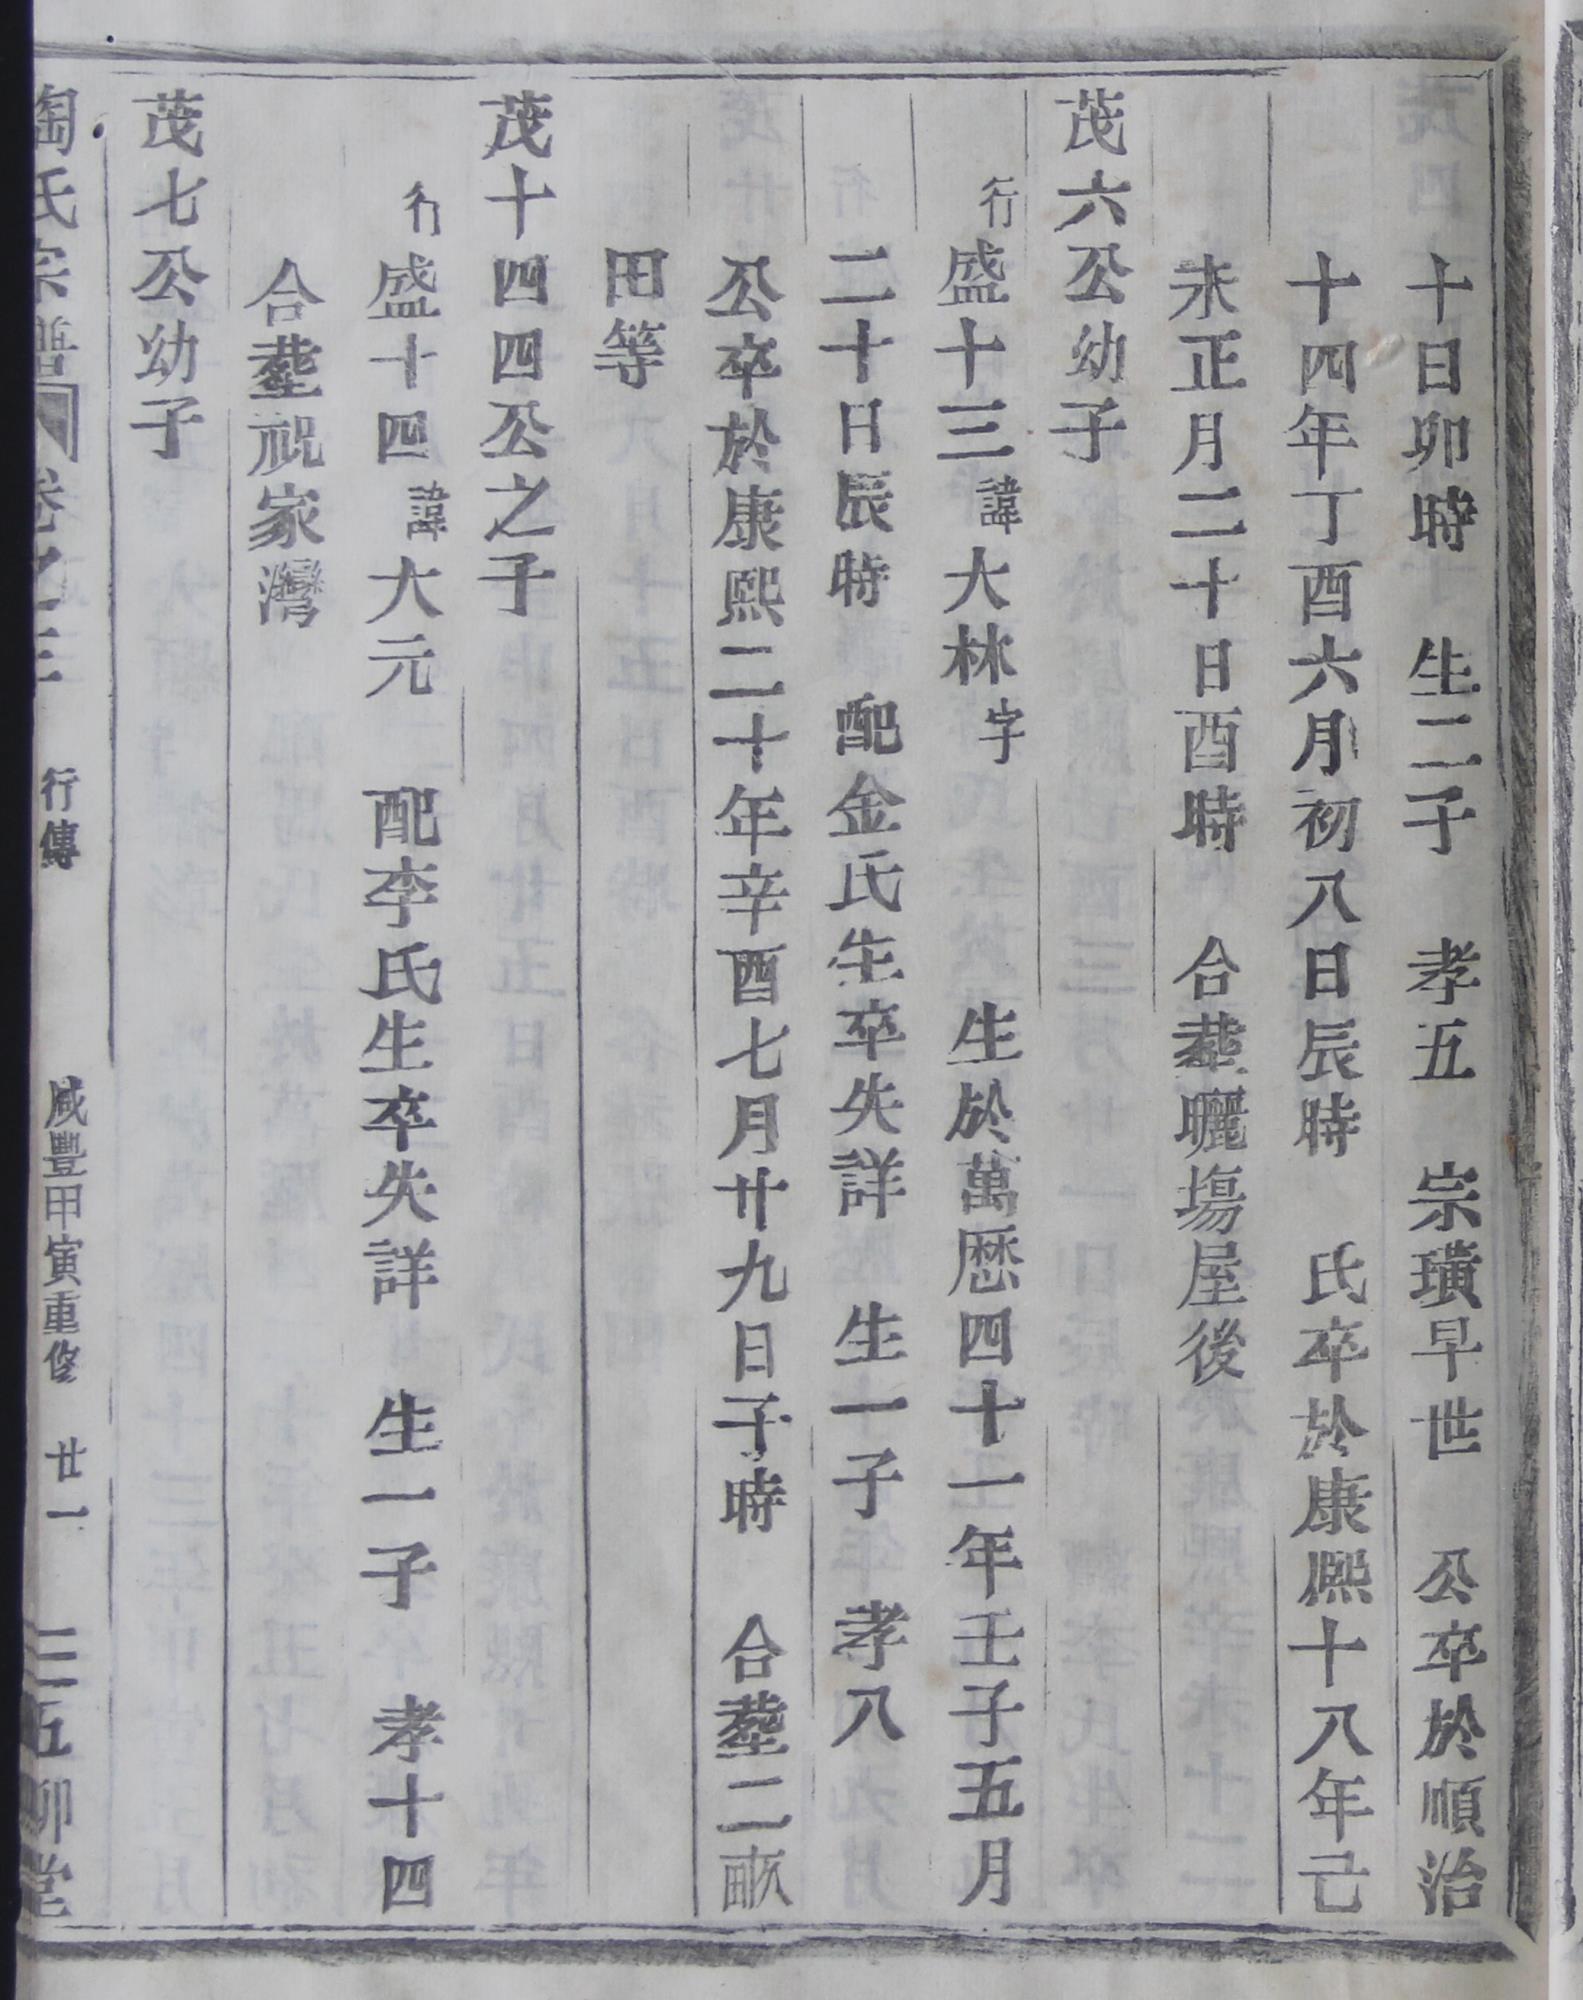 十日卯時　生二子　孝五　宗璜早世　公卒於順治
十四年丁酉六月初八日辰時　氏卒於康熙十八年己
未正月二十日酉時　合塟曬塲屋後
茂六公幼子
行盛十三諱大林字　生於萬歷四十一年壬子五月
二十日辰時　配金氏生卒失詳　生一子　孝八
公卒於康熙二十年辛酉七月廿九日子時　合塟二畝
田等
茂十四四公之子
行盛十四諱大元　配李氏生卒失詳　生一子　孝十四
合塟祝家灣
茂七公幼子
陶氏宗譜　卷之三　行傳　咸豐甲寅重修　廿一　三五柳堂